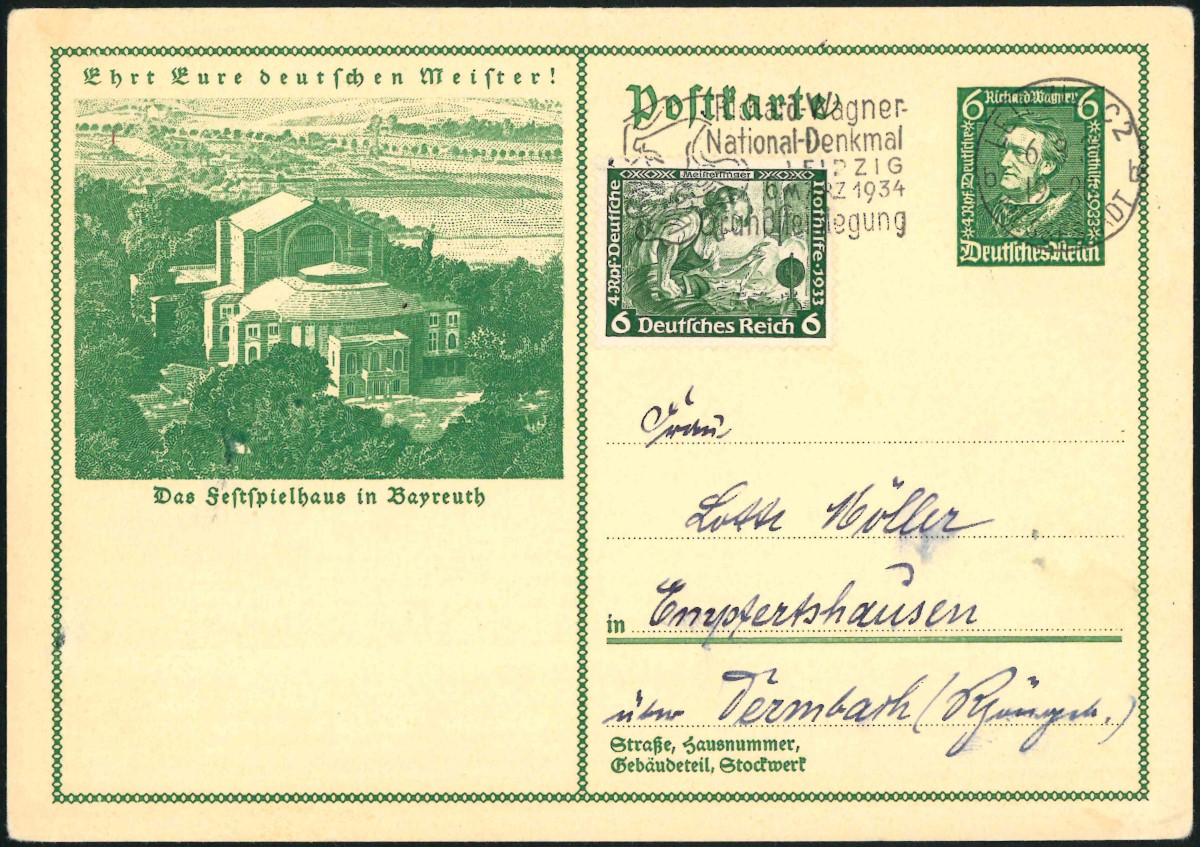 Ehrt Eure deutschen Meister!
Das Festspielhaus in Bayreuth
Postkarte
Richard-Wagner-
National-Denkmal
LEIPZIG
6. MÄRZ 1934
Grundsteinlegung
Meistersinger
4 Rpf·Deutsche
Nothilfe·1933
6 Deutsches Reich 6
6 Richard Wagner 6
4 Rpf·Deutsche
Nothilfe·1933
Deutsches Reich
C2
b
Frau
Lotte Möller
in Empfertshausen
über Dermbach
Straße, Hausnummer,
Gebäudeteil, Stockwerk